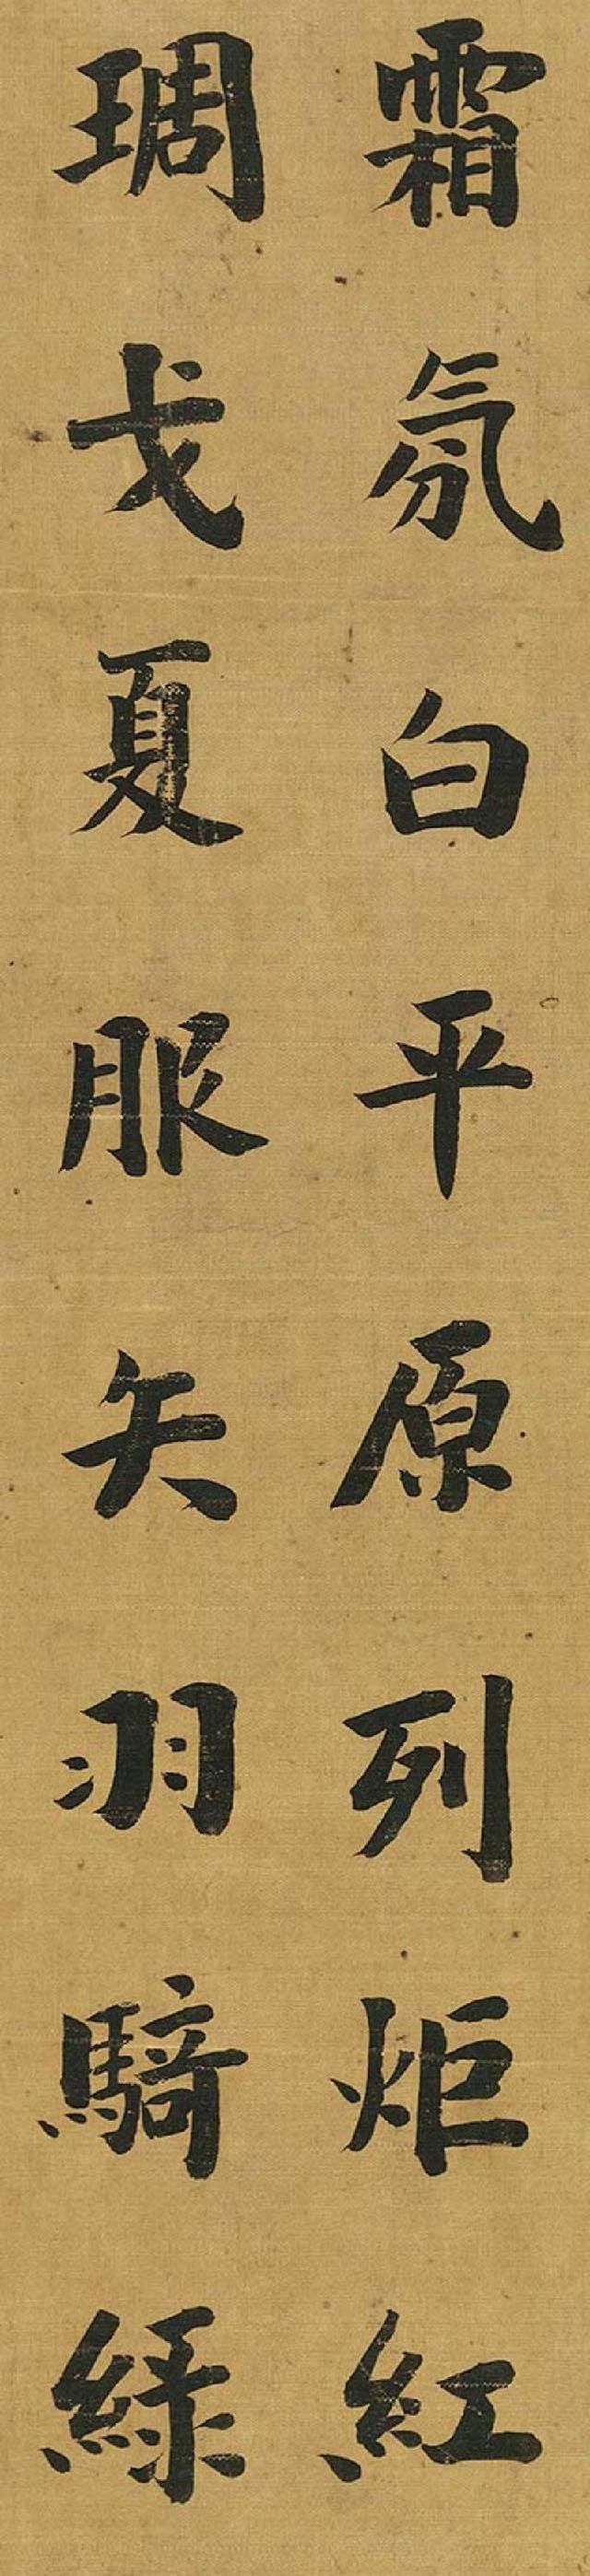 霜氛白平原列炬紅
琱戈夏服矢羽騎綠